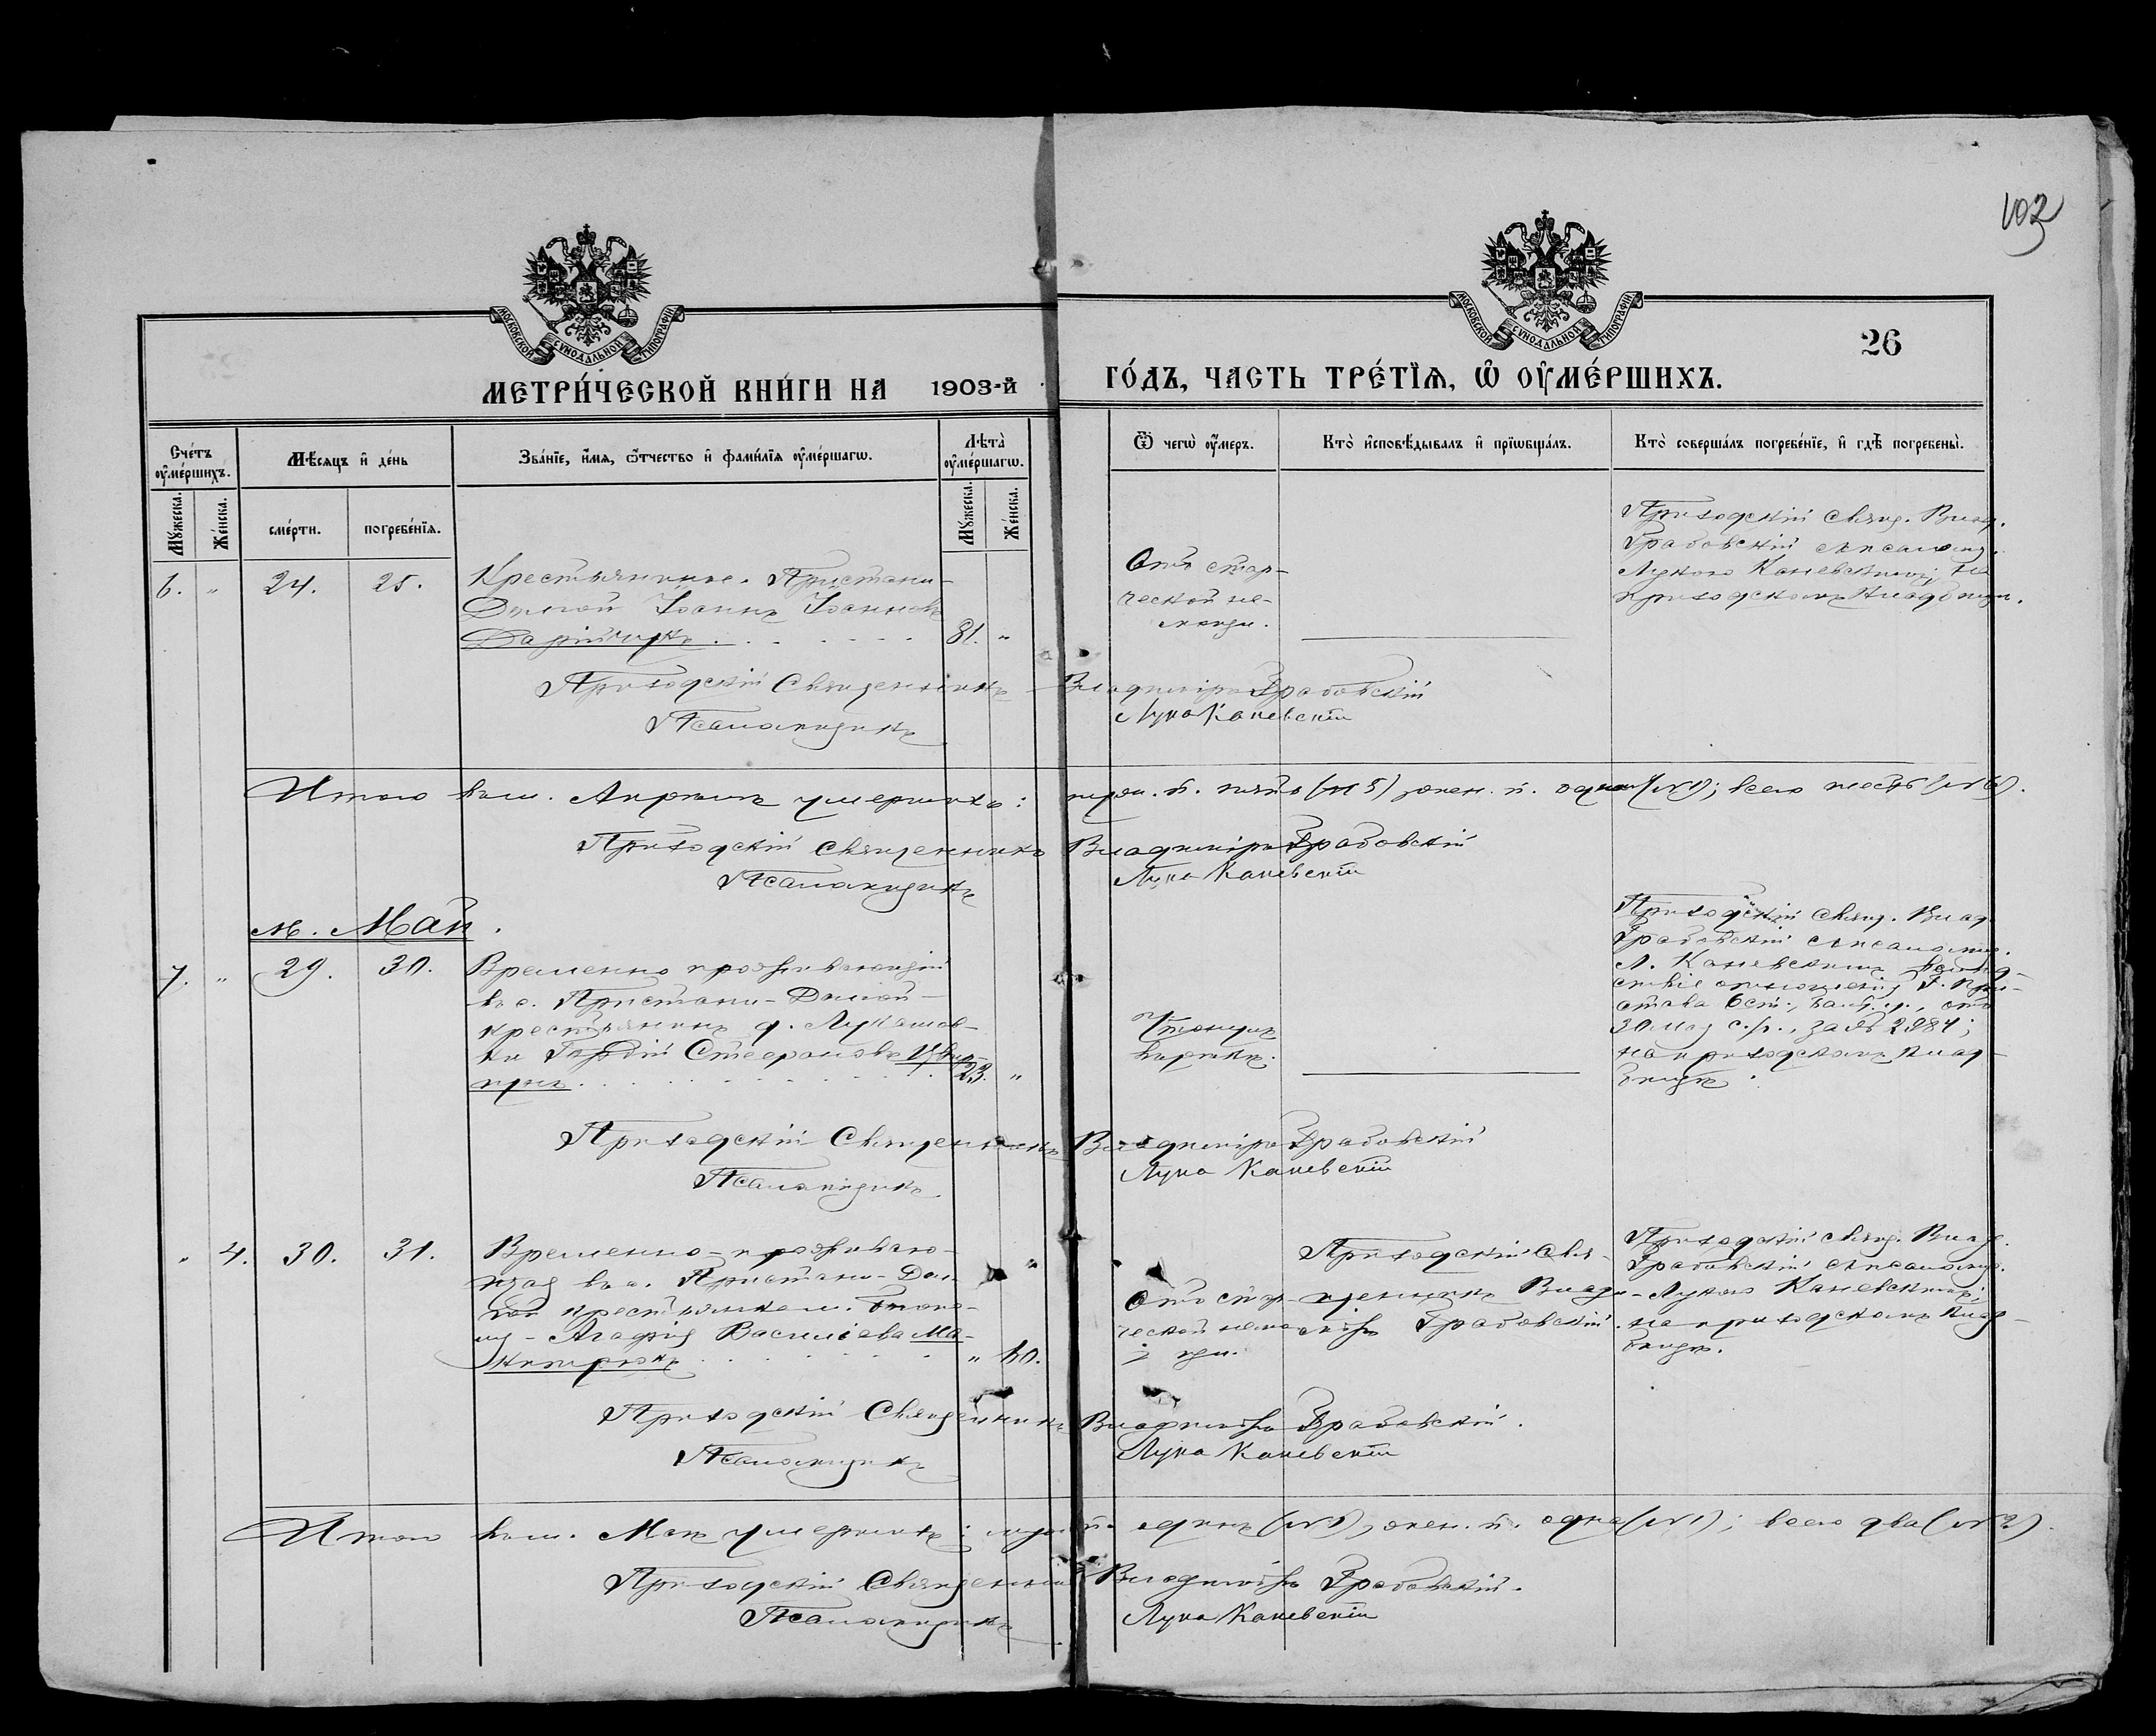 102
МОСКОВСКОЙ СѴНОДАЛЬНОЙ ТИПОГРАФІИ
МОСКОВСКОЙ СѴНОДАЛЬНОЙ ТИПОГРАФІИ
26
МЕТРИ́ЧЕСКОЙ КНИ́ГИ НА 1903-й ГО́ДЪ, ЧАСТЬ ТРЕ́ТЇѦ, Ѽ ОУ҆МЕ́РШИХЪ.
Сче́тъ оу҆ме́ршихъ.
Мѣ́сяцъ и҆ де́нь
Зва́нїе, и҆́мѧ, ѻ҆́тчество и҆ фами́лїѧ оу҆ме́ршагѡ.
Лѣта̀ оу҆ме́ршагѡ.
Ѿ чегѡ̀ оу҆́меръ.
Кто̀ и҆сповѣ́дывалъ и҆ прїѡбща́лъ.
Кто̀ соверша́лъ погребе́нїе, и҆ гдѣ̀ погребены̀.
Му́жеска. Же́нска.
сме́рти. погребе́нїѧ.
Му́жеска. Же́нска.
6. " 24. 25.
Крестьянинъ с. Пристани-
Долгой Іоаннъ Іоанновъ
81. "
Отъ стар-
ческой не-
мощи.
Приходскій свящ. Влад.
Грабовскій с псаломщ.
Лукою Каневскимъ, на
приходскомъ кладбищѣ.
Приходскій Священникъ Владиміръ Грабовскій
Псаломщикъ Лука Каневскій
Итого въ м. Апрѣлѣ умершихъ: муж. п. пять (№ 5) жен. п. одна (№ 1); всего шесть (№ 6).
Приходскій Священникъ Владиміръ Грабовскій
Псаломщикъ Лука Каневскій
М. Май.
7. " 29. 30.
Временно проживающій
въ с. Пристани-Долгой-
крестьянинъ д. Лукашов-
ки Гордій Стефановъ
23. "
Приходскій свящ. Влад.
Грабовскій с псаломщ.
Л. Каневскимъ вслѣд-
ствіе отношенія Г. При-
става
30 мая с. г., за № 2984;
на приходскомъ клад-
бищѣ.
Приходскій Священникъ Владиміръ Грабовскій
Псаломщикъ Лука Каневскій
" 4. 30. 31.
Временно-проживаю-
щая въ с. Пристани-Дол-
гой крестьянка м.
Агафія Василіева Ма-
" "
" 60.
Отъ стар-
ческой немо-
щи.
Приходскій Свя-
щенникъ Влади-
міръ Грабовскій.
Приходскій свящ. Влад.
Грабовскій с псаломщ.
Лукою Каневскимъ;
на приходскомъ клад-
бищѣ.
Приходскій Священникъ Владиміръ Грабовскій.
Псаломщикъ Лука Каневскій
Итого въ м. Маѣ умершихъ: муж. п. одинъ (№ 1), жен. п. одна (№ 1); всего два (№ 2).
Приходскій Священникъ Владиміръ Грабовскій.
Псаломщикъ Лука Каневскій